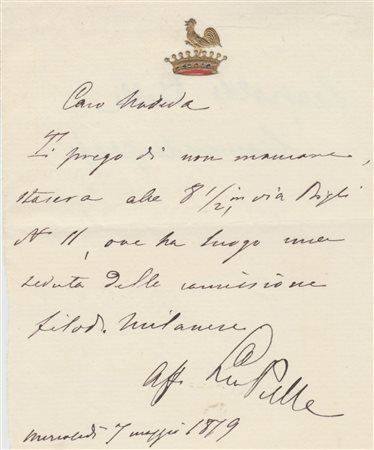 Caro Nadeda
Ti prego di non mancare,
stasera alle 8 1/2, in via Bigli
N 11, ove ha luogo una
seduta della commissione
filod. milanese
Aff.
mercoledì 7 maggio 1879